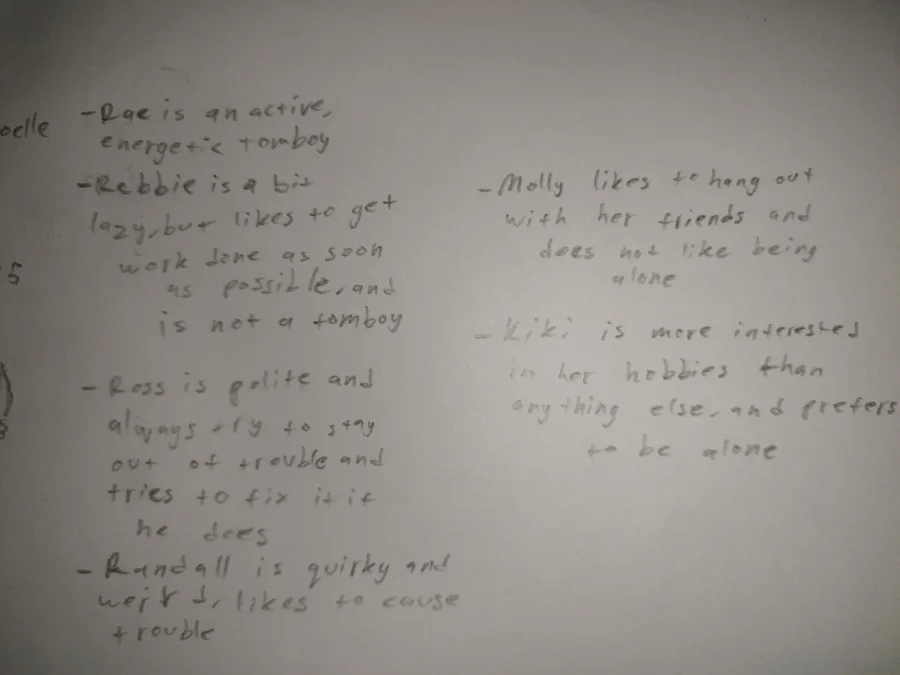 - Rae is an active,
energetic tomboy
- Rebbie is a bit
lazy, but likes to get
work done as soon
as possible, and
is not a tomboy
- Ross is polite and
always try to stay
out of trouble and
tries to fix it if
he does
- Randall is quirky and
weird, likes to cause
trouble
- Molly likes to hang out
with her friends and
does not like being
alone
- Kiki is more interested
in her hobbies than
anything else, and prefers
to be alone
5